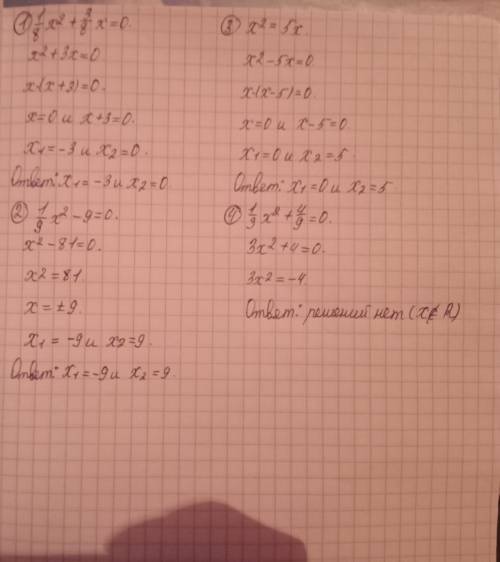 ① 1/8 x² + 3/8 x = 0.
x² + 3x = 0
x·(x+3) = 0.
x = 0 и x+3 = 0.
x₁ = -3 и x₂ = 0.
Ответ: x₁ = -3 и x₂ = 0
② 1/9 x² - 9 = 0.
x² - 81 = 0.
x² = 81.
x = ±9.
x₁ = -9 и x₂ = 9.
Ответ: x₁ = -9 и x₂ = 9.
③ x² = 5x.
x² - 5x = 0.
x·(x-5) = 0.
x = 0 и x-5 = 0.
x₁ = 0 и x₂ = 5.
Ответ: x₁ = 0 и x₂ = 5
④ 1/3 x² + 4/9 = 0.
3x² + 4 = 0.
3x² = -4.
Ответ: решений нет (x∉R)